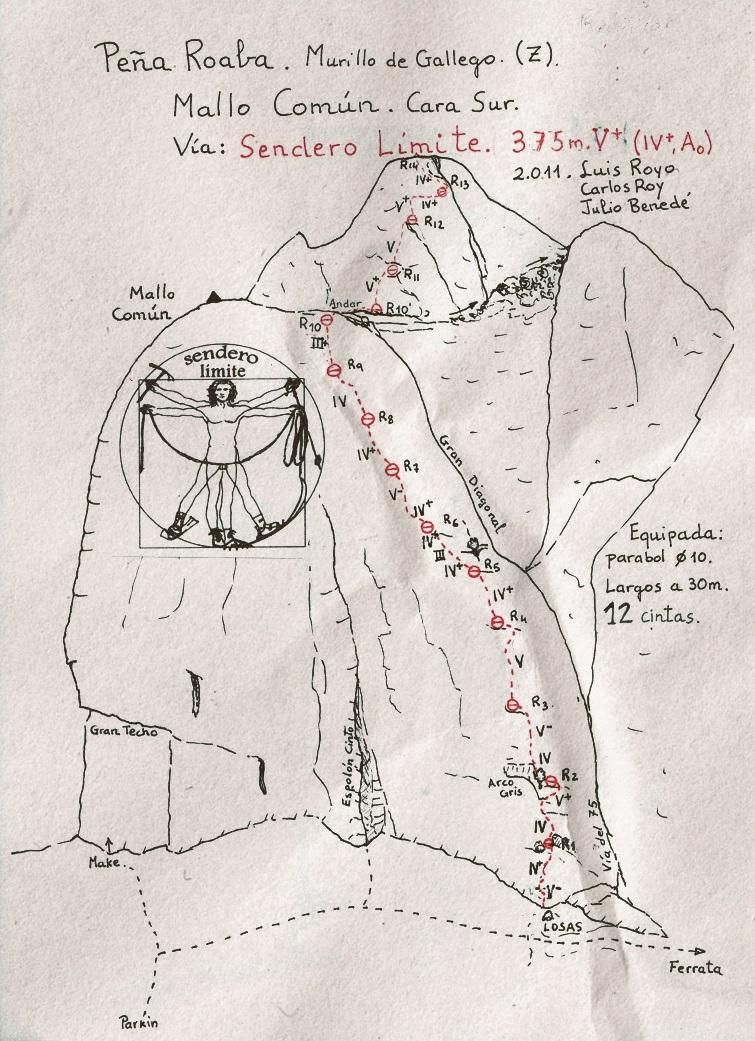 Peña Roaba. Murillo de Gallego. (Z).
Mallo Común. Cara Sur.
Vía: Sendero Límite. 375m. V+ (IV+, A0)
2.011. Luis Royo
Carlos Roy
Julio Benedé
R14
IV+
R13
IV+
V+
R12
V
R11
V+
Mallo
Común
Andar
R10'
R10
III+
sendero
límite
R9
IV
R8
IV+
R7
V-
Gran Diagonal
IV+
R6
IV+
III
R5
IV+
IV+
Equipada:
parabol ø10.
Largos a 30m.
12 cintas.
R4
V
R3
V-
Gran Techo
Espolón Cinto
IV
R2
Arco
Gris
V+
Vía del 75
IV
R1
Make
V-
LOSAS
Ferrata
Parkin